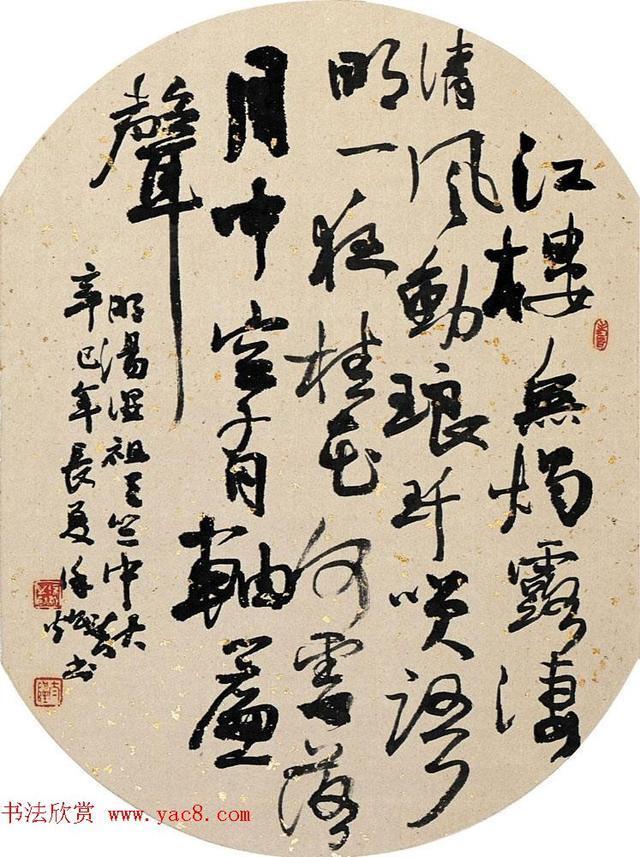 江樓無燭露凄
清風動琅玕咲語
明一夜桂花何處落
月中空有軸簾
聲
明湯顯祖天竺中秋
辛巳年長夏書
书法欣赏 www.yac8.com